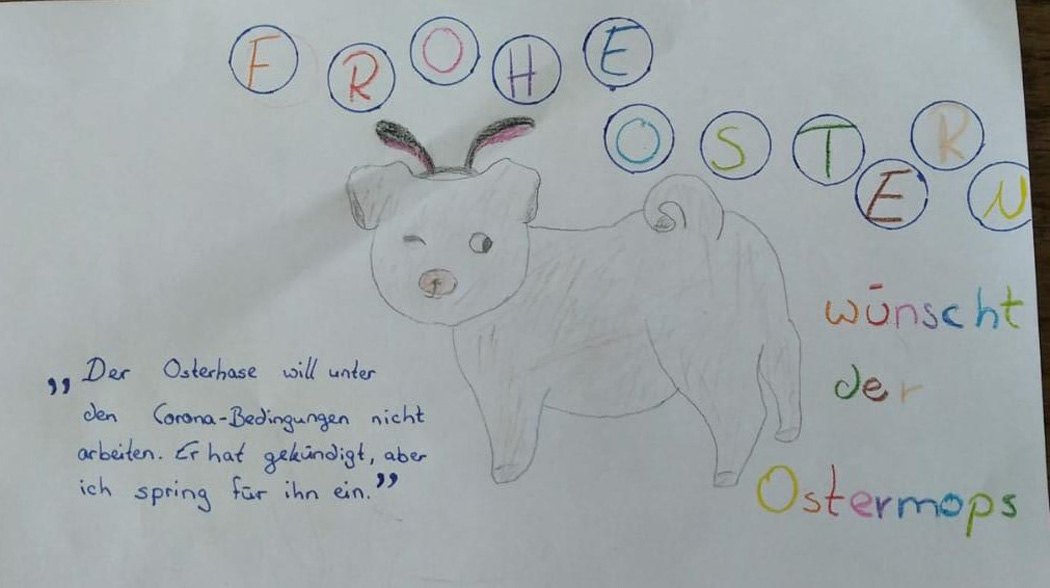 FROHE
OSTERN
wünscht
der
Ostermops
„Der Osterhase will unter
den Corona-Bedingungen nicht
arbeiten. Er hat gekündigt, aber
ich spring für ihn ein."